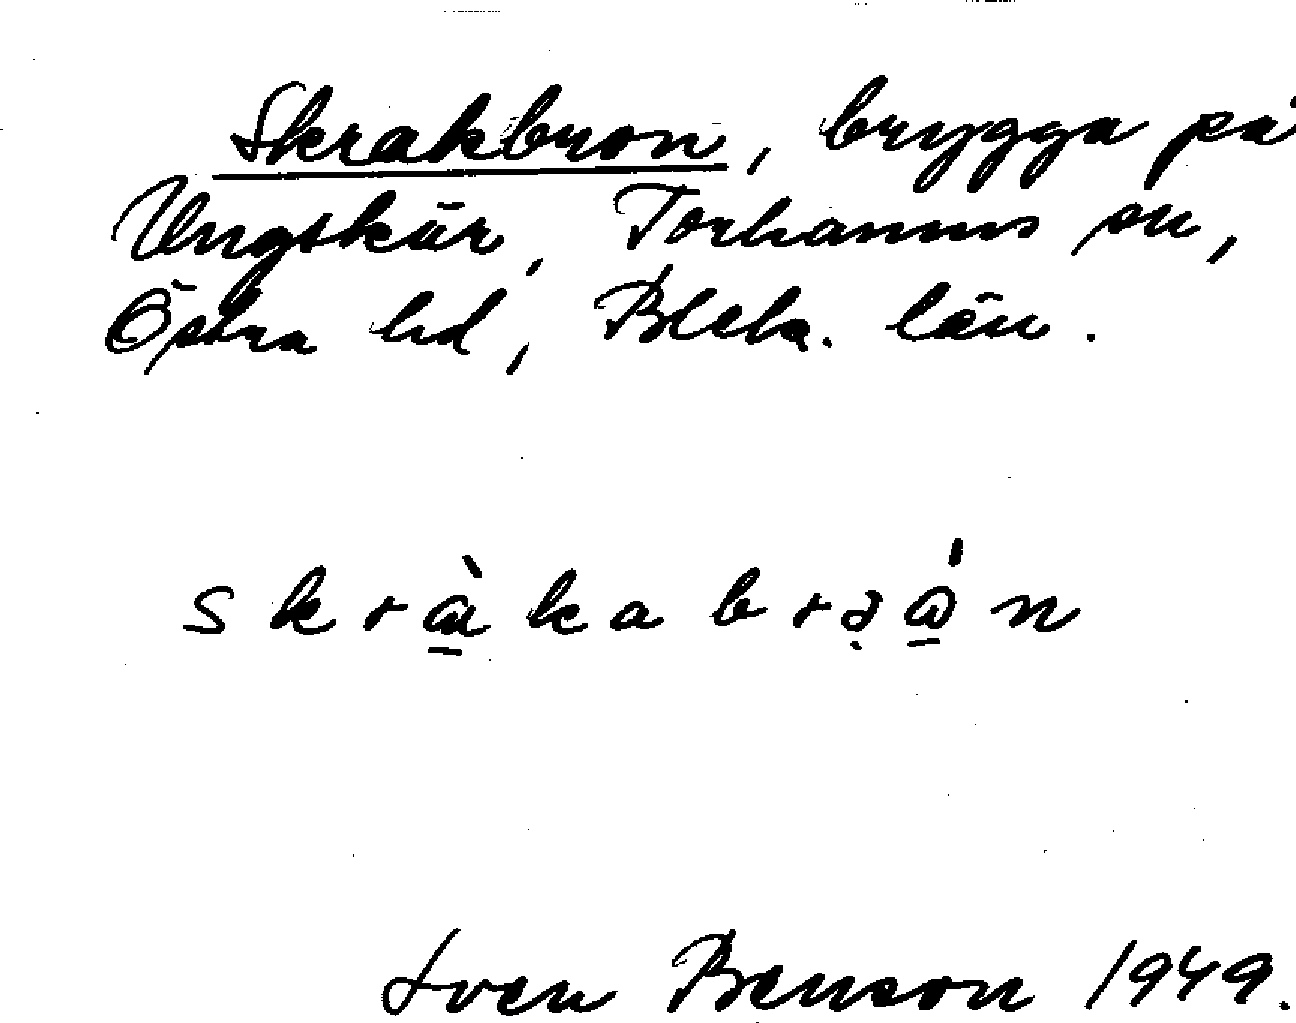 Skrakbron, brygga på
Ungskär, Torhamns sn,
Östra hd, Blek. län.
skràkabrəón
Sven Benson 1949.